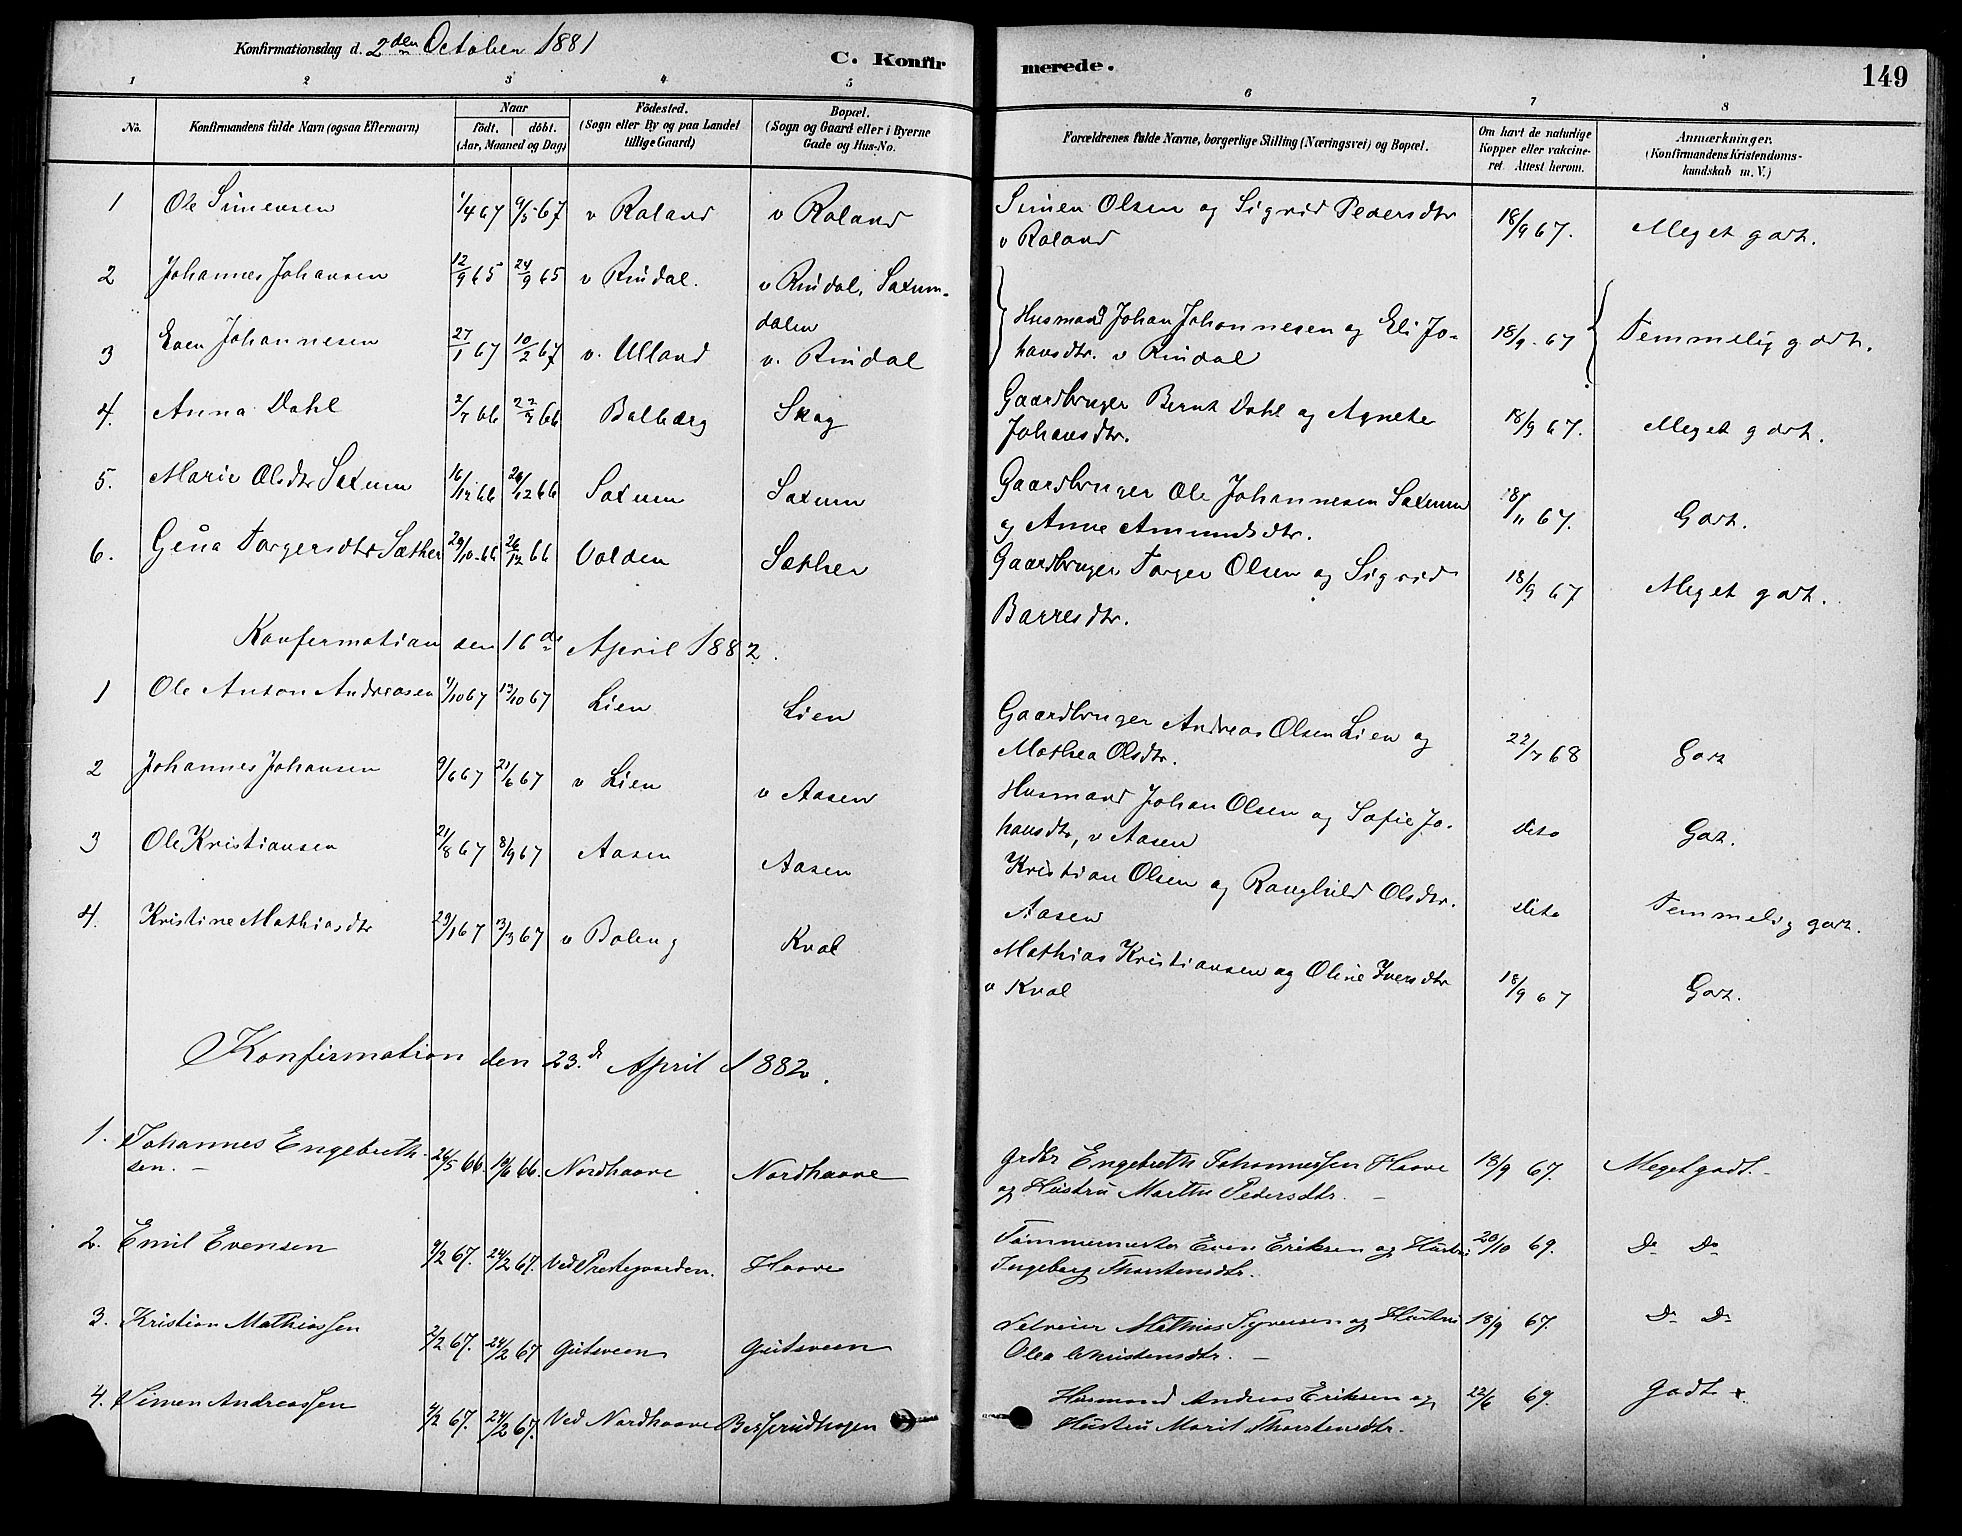 Konfirmationsdag d. 2den October 1881
C. Konfirmerede.
149
1 2 3 4 5 6 7 8
No. Konfirmandens fulde Navn (ogsaa Efternavn) Naar födt. döbt. (Aar, Maaned og Dag) Födested. (Sogn eller By og paa Landet tillige Gaard) Bopæl. (Sogn og Gaard eller i Byerne Gade og Hus-No. Forældrenes fulde Navne, borgerlige Stilling (Næringsvei) og Bopæl. Om havt de naturlige Kopper eller vakcineret. Attest herom. Anmærkninger. (Konfirmandens Kristendomskundskab m. V.)
1 Ole Simensen 1/4 67 9/5 67 v Roland v Roland Simen Olsen og Sigrid Pedersdtr v Roland 18/9 67. Meget godt.
2 Johannes Johansen 12/9 65 24/9 65 v Rindal. v Rindal, Saxumdalen
3 Even Johannesen 27/1 67 10/2 67 v. Ulland v. Rindal Husmand Johan Johannesen og Eli Johansdtr. v Rindal 18/9 67 Temmelig godt.
4. Anna Dahl 2/7 66 22/7 66 Balbærg Skog Gaardbruger Bernt Dahl og Agnete Johansdtr. 18/9 67. Meget godt.
5. Marie Olsdtr Saxum 16/12 66 26/12 66 Saxum Saxum Gaardbruger Ole Johannesen Saxum og Anne Amundsdtr. 18/11 67. Godt.
6. Gina Torgersdtr Sæther 29/10 66 26/12 66 Volden Sæther Gaardbruger Torger Olsen og Sigrid Barresdtr. 18/9 67 Meget godt.
Konfirmation den 16de April 1882.
1 Ole Anton Andreasen 1/10 67 13/10 67 Lien Lien Gaardbruger Andreas Olsen Lien og Mathea Olsdtr. 22/7 68 Godt
2 Johannes Johansen 9/6 67 21/6 67 v Lien v Aasen Husmand Johan Olsen og Sofie Johansdtr, v Aasen dito Godt.
3 Ole Kristiansen 21/8 67 8/9 67 Aasen Aasen Kristian Olsen og Ranghild Olsdtr. Aasen dito Temmelig godt.
4. Kristine Mathiasdtr 29/1 67 3/3 67 v Baleng Kval Mathias Kristiansen og Oline Iversdtr v Kval 18/9 67 Godt.
Konfirmation den 23.de April 1882.
1. Johannes Engebrethsen. 26/5 66. 10/6 66. Nordhaave Nordhaave Grdbr Engebreth Johannessen Haave og Hustru Marthe Pedersdtr. 18/9 67. Meget godt.
2. Emil Evensen 9/2 67. 24/2 67. Ved Prestegaarden. Haave Tømmermester Even Eriksen og Hustru Ingeborg Thorstensdtr. 20/10 69. Do Do
3. Kristian Mathiassen 2/2 67. 24/2 67 Gutsveen Gutsveen Selveier Mathias Syversen og Hustru Olea Christensdtr. 18/9 67. Do Do
4. Simen Andreassen 4/2 67. 24/2 67. Ved Nordhaave Besserudhagen Husmand Andreas Eriksen og Hustru Marit Thorstensdtr. 22/6 69. Godt +